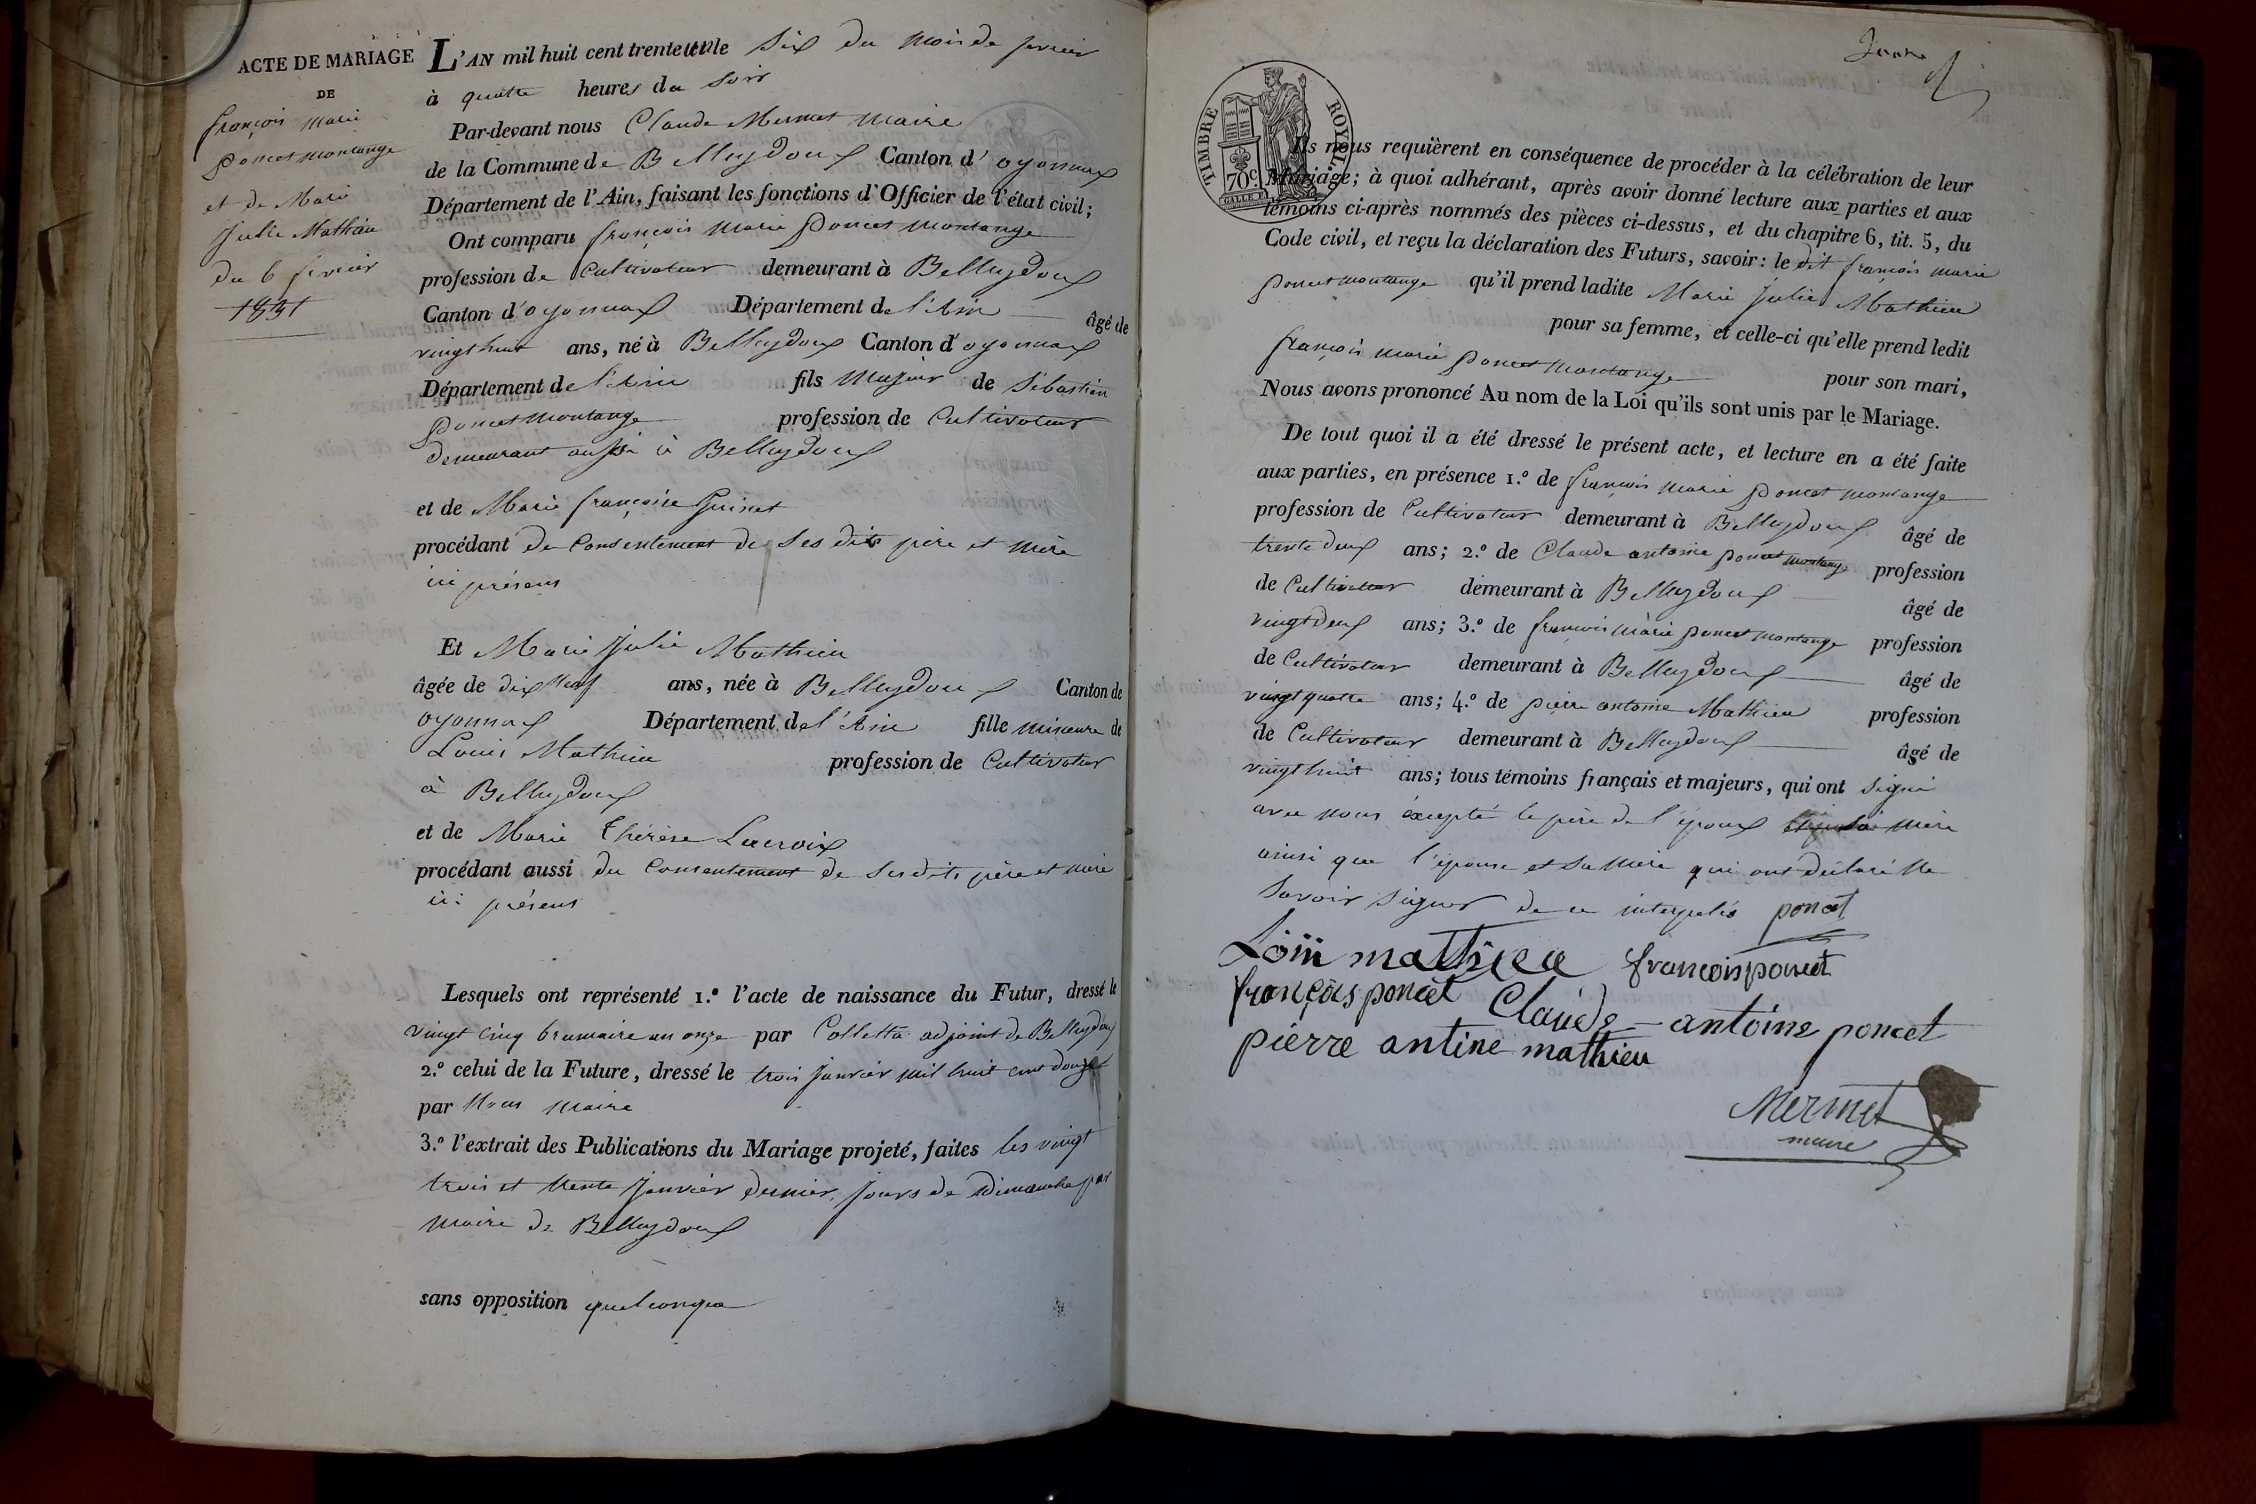 ACTE DE MARIAGE
DE
françois marie
poncet montange
et de Marie
Julie Mathieu
du 6 fevrier
1831
L'AN mil huit cent trente un le Six du mois de fevrier
à quatre heures du soir
Par-devant nous Claude Mermet maire
de la Commune de Belleydoux Canton d'oyonnax
Département de l'Ain, faisant les fonctions d'Officier de l'état civil;
Ont comparu françois marie poncet montange
profession de Cultivateur demeurant à Belleydoux
Canton d'oyonnax Département de l'Ain âgé de
vingt huit ans, né à Belleydoux Canton d'oyonnax
Département de l'Ain fils majeur de Sébastien
poncet montange profession de Cultivateur
demeurant aussi à Belleydoux
et de Marie françoise Guinet
procédant de Consentement de ses dits père et mère
ici présens
Et Marie Julie Mathieu
âgée de dix Neuf ans, née à Belleydoux Canton de
oyonnax Département de l'Ain fille mineure de
Louis Mathieu profession de Cultivateur
à Belleydoux
et de Marie thérèse Lacroix
procédant aussi du Consentement de ses dits père et mère
ici présens
Lesquels ont représenté 1.º l'acte de naissance du Futur, dressé le
vingt cinq brumaire an onze par Colletta adjoint de Belleydoux
2.º celui de la Future, dressé le trois janvier mil huit cent douze
par Nous maire
3.º l'extrait des Publications du Mariage projeté, faites les vingt
trois et trente janvier dernier, jours de dimanche par
maire de Belleydoux
sans opposition quelconque
TIMBRE ROYAL
70c.
Ils nous requièrent en conséquence de procéder à la célébration de leur
Mariage; à quoi adhérant, après avoir donné lecture aux parties et aux
témoins ci-après nommés des pièces ci-dessus, et du chapitre 6, tit. 5, du
Code civil, et reçu la déclaration des Futurs, savoir: le dit françois marie
poncet montange qu'il prend ladite Marie Julie Mathieu
pour sa femme, et celle-ci qu'elle prend ledit
françois marie poncet montange pour son mari,
Nous avons prononcé Au nom de la Loi qu'ils sont unis par le Mariage.
De tout quoi il a été dressé le présent acte, et lecture en a été faite
aux parties, en présence 1.º de françois marie poncet montange
profession de Cultivateur demeurant à Belleydoux âgé de
trente deux ans; 2.º de Claude antoine poncet montange profession
de Cultivateur demeurant à Belleydoux âgé de
vingt deux ans; 3.º de françois marie poncet montange profession
de Cultivateur demeurant à Belleydoux âgé de
vingt quatre ans; 4.º de pierre antoine Mathieu profession
de Cultivateur demeurant à Belleydoux âgé de
vingt huit ans; tous témoins français et majeurs, qui ont signé
avec nous excepté le père de l'époux mère
ainsi que l'épouse et sa mère qui ont déclaré ne
savoir signer de ce interpelés poncet
Loüi mathieu françoisponcet
françois poncet Claude-antoine poncet
pierre antine mathieu
Mermet
maire